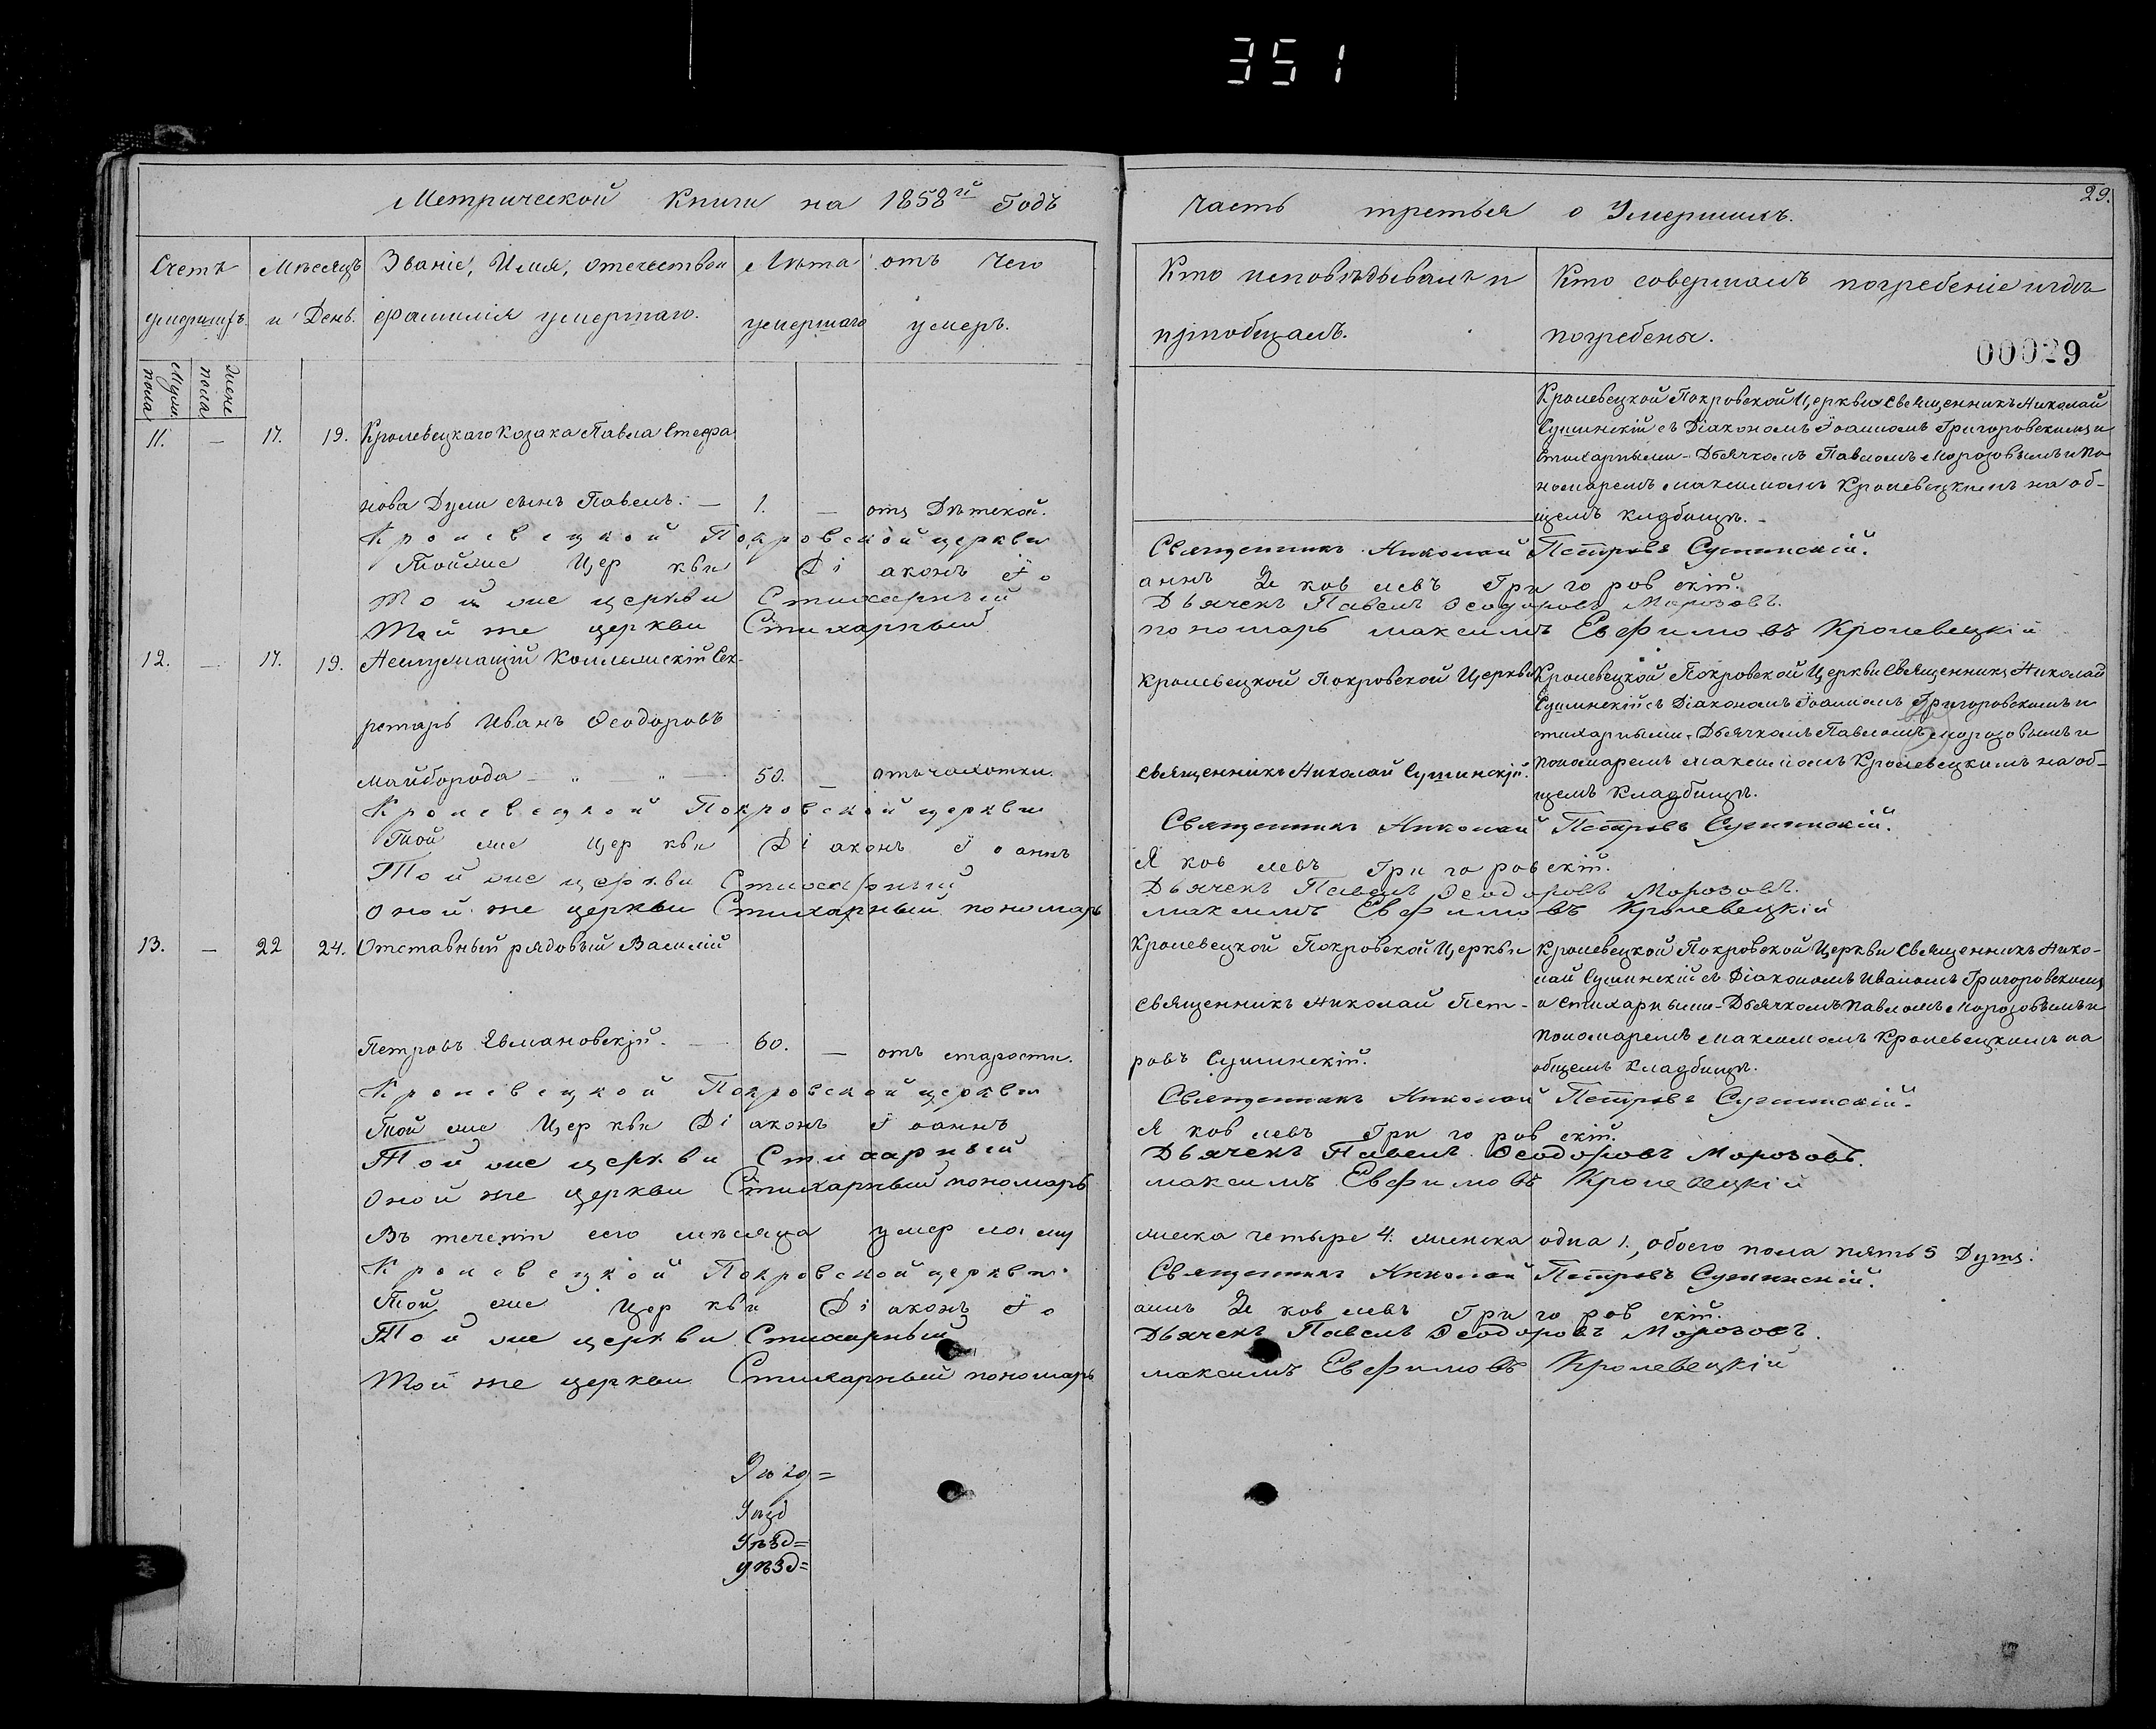 351
29.
Метрической Книги на 1858й Годъ
Часть третья о Умершихъ.
Счетъ умершихъ.
Мужеска пола
Женска пола
Мѣсяцъ и День.
Званіе, Имя, Отечество и
фамилія умершаго.
Лѣта умершаго
отъ чего умеръ.
Кто исповѣдывалъ и
пріобщалъ.
Кто совершалъ погребеніе и гдѣ
погребены.
00029
11. — 17. 19. Кролевецкаго Козака Павла Стефа
нова Думи сынъ Павелъ. — 1. — отъ Дѣтской.
Кролевецкой Покровской Церкви Священникъ Николай
Сушинскій съ Діакономъ Іоанномъ Григоровскимъ и
стихарными - Дьячкомъ Павломъ Морозовымъ и По
номаремъ Максимомъ Кролевецкимъ на об-
щемъ кладбищѣ. -
Кролевецкой Покровской церкви Священникъ Николай Петровъ Сушинскій.
Той же Церкви Діаконъ Іоаннъ Яковлевъ Григоровскій.
Той же церкви Стихарный Дьячекъ Павелъ Ѳеодоровъ Морозовъ.
Той же церкви Стихарный пономарь Максимъ Евфимовъ Кролевецкій
12. — 17. 19. Неслужащій Коллежскій Сек-
ретарь Иванъ Ѳеодоровъ
Майборода — „ — „ — 50. — отъ чахотки.
Кролевецкой Покровской Церкви
Священникъ Николай Сушинскій.
Кролевецкой Покровской Церкви Священникъ Николай
Сушинскій съ Діакономъ Іоанномъ Григоровскимъ и
стихарными - Дьячкомъ Павломъ Морозовымъ и
Пономаремъ Максимомъ Кролевецкимъ на об-
щемъ Кладбищѣ.
Кролевецкой Покровской церкви Священникъ Николай Петровъ Сушинскій.
Той же Церкви Діаконъ Іоаннъ Яковлевъ Григоровскій.
Той же церкви Стихарный Дьячекъ Павелъ Ѳеодоровъ Морозовъ.
Оной же церкви Стихарный пономарь Максимъ Евфимовъ Кролевецкій
13. — 22 24. Отставный рядовый Василій
Петровъ Явмановскій. — 60. — отъ старости.
Кролевецкой Покровской Церкви
Священникъ Николай Пет-
ровъ Сушинскій.
Кролевецкой Покровской Церкви Священникъ Нико-
лай Сушинскій съ Діакономъ Иваномъ Григоровскимъ
и стихарными - Дьячкомъ Павломъ Морозовымъ и
Пономаремъ Максимомъ Кролевецкимъ на
общемъ Кладбищѣ.
Кролевецкой Покровской церкви Священникъ Николай Петровъ Сушинскій.
Той же Церкви Діаконъ Іоаннъ Яковлевъ Григоровскій.
Той же церкви Стихарный Дьячекъ Павелъ Ѳеодоровъ Морозовъ.
Оной же церкви Стихарный пономарь Максимъ Евфимовъ Кролевецкій
Въ теченіи сего мѣсяца умерло мужеска четыре 4. женска одна 1., обоего пола пять 5 Душъ.
Кролевецкой Покровской церкви Священникъ Николай Петровъ Сушинскій.
Той же Церкви Діаконъ Іоаннъ Яковлевъ Григоровскій.
Той же церкви Стихарный Дьячекъ Павелъ Ѳеодоровъ Морозовъ.
Той же церкви Стихарный пономарь Максимъ Евфимовъ Кролевецкій
Уѣзд=
Уѣзд
Уѣзд=
уѣзд=